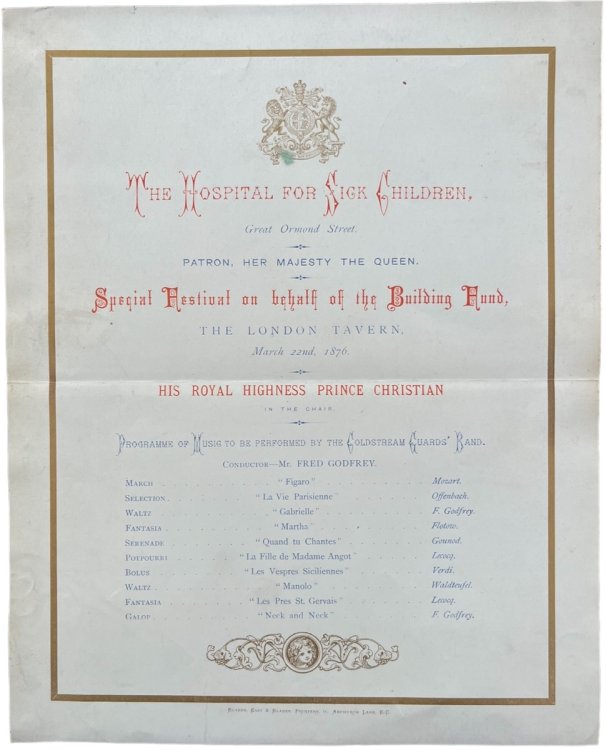 The Hospital for Sick Children,
Great Ormond Street.
PATRON, HER MAJESTY THE QUEEN.
Special Festival on behalf of the Building Fund,
THE LONDON TAVERN,
March 22nd, 1876.
HIS ROYAL HIGHNESS PRINCE CHRISTIAN
IN THE CHAIR.
Programme of Music to be performed by the Coldstream Guards' Band.
Conductor—Mr. FRED GODFREY.
March . . . "Figaro" . . . Mozart.
Selection . . . "La Vie Parisienne" . . . Offenbach.
Waltz . . . "Gabrielle" . . . F. Godfrey.
Fantasia . . . "Martha" . . . Flotow.
Serenade . . . "Quand tu Chantes" . . . Gounod.
Potpourri . . . "La Fille de Madame Angot" . . . Lecocq.
Bolus . . . "Les Vespres Siciliennes" . . . Verdi.
Waltz . . . "Manolo" . . . Waldteufel.
Fantasia . . . "Les Pres St. Gervais" . . . Lecocq.
Galop . . . "Neck and Neck" . . . F. Godfrey.
Blades, East & Blades, Printers, 11, Abchurch Lane, E.C.